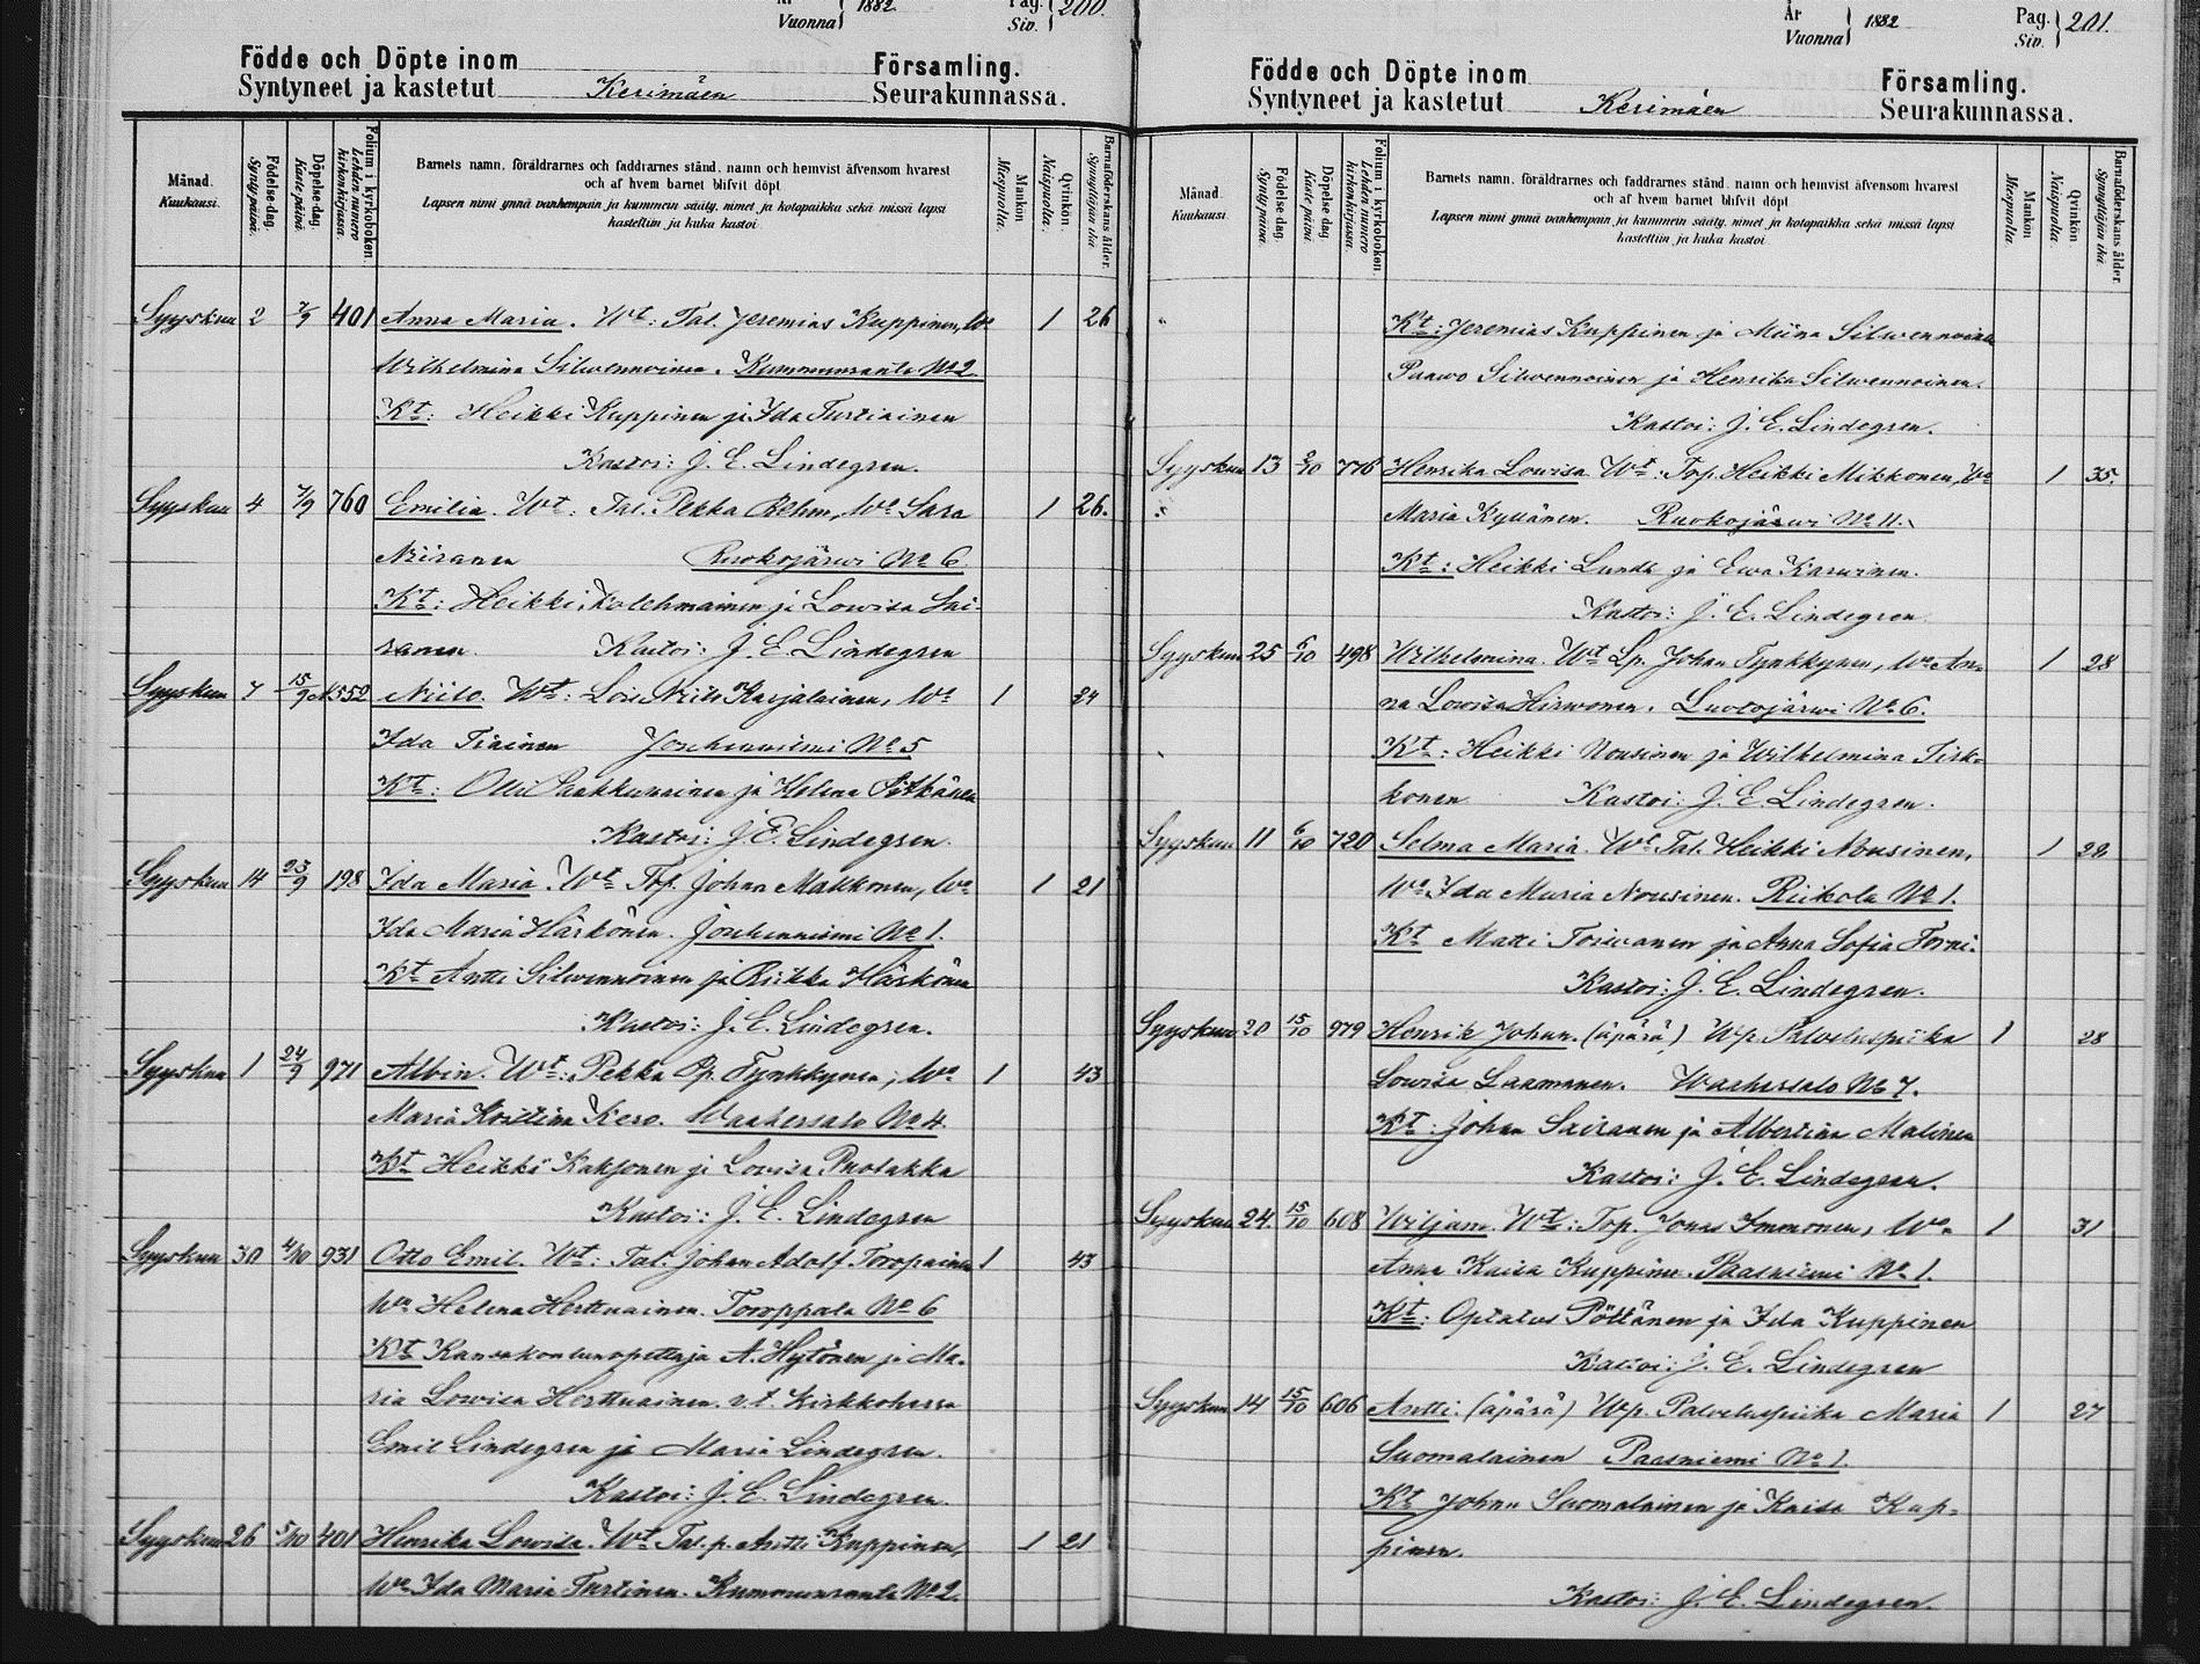 År
Vuonna } 1882.
Pag.
Siv. } 200.
Födde och Döpte inom Församling.
Syntyneet ja kastetut Kerimäen Seurakunnassa.
Månad. Kuukausi.
Födelse-dag. Syntypäivä.
Döpelse-dag. Kastepäivä.
Folium i kyrkoboken. Lehden numero kirkonkirjassa.
Barnets namn, föräldrarnes och faddrarnes stånd, namn och hemvist äfvensom hvarest
och af hvem barnet blifvit döpt.
Lapsen nimi ynnä vanhempain ja kummein sääty, nimet ja kotopaikka sekä missä lapsi
kastettiin ja kuka kastoi.
Mankön. Miespuolia.
Qvinkön. Naispuolia.
Barnaföderskans ålder. Synnyttäjän ikä.
Syyskuu 2 7/9 401 Anna Maria. Wt: Tal. Jeremias Kuppinen, Wo 1 26
Wilhelmina Silwennoinen. Kummunranta No 2
Kt: Heikki Kuppinen ja Ida Turtiainen
Kastoi: J. E. Lindegren.
Syyskuu 4 7/9 760 Emilia. Wt: Tal. Pekka Behm, Wo Sara 1 26.
Niiranen Ruokojärwi No 6
Kt: Heikki Kolehmainen ja Lowisa Sai-
ranen. Kastoi: J. E. Lindegren
Syyskuu 7 15/9 552 Niilo. Wt: Lois Niilo Karjalainen, Wo 1 24
Ida Tiainen Jouhenniemi No 5
Kt: Olli Paakkunainen ja Helena Pitkänen
Kastoi: J. E. Lindegren.
Syyskuu 14 23/9 198 Ida Maria. Wt Trp. Johan Makkonen, Wo 1 21
Ida Maria Härkönen. Jouhenniemi No 1.
Kt Antti Silwennoinen ja Riikka Härkönen
Kastoi: J. E. Lindegren.
Syyskuu 1 24/9 971 Albin. Wt: Pekka Tp. Tynkkynen, Wo 1 43
Maria Kristina Kero. Waahersalo No 4.
Kt Heikki Kaksonen ja Lowisa Puolakka
Kastoi: J. E. Lindegren
Syyskuu 30 4/10 931 Otto Emil. Wt: Tal. Johan Adolf Toropainen 1 43
Wo Helena Herttuainen. Toroppala No 6
Kt Kansakoulunopettaja A. Hytönen ja Ma-
ria Lowisa Herttuainen. v.t. Kirkkoherra
Emil Lindegren ja Maria Lindegren.
Kastoi: J. E. Lindegren.
Syyskuu 26 5/10 401 Henrika Lowisa. Wt Tal. p. Antti Kuppinen, 1 21
Wo Ida Maria Turtinen. Kummunranta No 2.
År
Vuonna } 1882
Pag.
Siv. } 201.
Födde och Döpte inom Församling.
Syntyneet ja kastetut Kerimäen Seurakunnassa.
Månad. Kuukausi.
Födelse dag. Syntypäivä.
Döpelse dag. Kastepäivä.
Folium i kyrkoboken. Lehden numero kirkonkirjassa.
Barnets namn, föräldrarnes och faddrarnes stånd, namn och hemvist äfvensom hvarest
och af hvem barnet blifvit döpt.
Lapsen nimi ynnä vanhempain ja kummein sääty, nimet ja kotopaikka sekä missä lapsi
kastettiin ja kuka kastoi
Mankön Miespuolia.
Qvinkön Naispuolia.
Barnaföderskans ålder. Synnyttäjän ikä.
Kt: Jeremias Kuppinen ja Miina Silwennoinen
Paawo Silwennoinen ja Henrika Silwennoinen.
Kastoi: J. E. Lindegren.
Syyskuu 13 2/10 776 Henrika Lowisa. Wt: Trp. Heikki Mikkonen, Wo 1 35.
Maria Kyllönen. Ruokojärwi No 11.
Kt: Heikki Lundt ja Ewa Karwinen.
Kastoi: J. E. Lindegren
Syyskuu 25 6/10 498 Wilhelmina. Wt Lp. Johan Tynkkynen, Wo An- 1 28
na Lowisa Hirwonen. Luotojärwi No 6.
Kt: Heikki Nousinen ja Wilhelmina Tirk-
konen Kastoi: J. E. Lindegren.
Syyskuu 11 6/10 720 Selma Maria. Wt Tal. Heikki Nousinen, 1 28
Wo Ida Maria Nousinen. Riikola No 1.
Kt Matti Toiwanen ja Anna Sofia Torni.
Kastoi: J. E. Lindegren.
Syyskuu 20 15/10 979 Henrik Johan. (äpärä) Wp. Palveluspiika 1 28
Lowisa Laamanen. Waahersalo No 7.
Kt: Johan Sairanen ja Albertina Malinen
Kastoi: J. E. Lindegren.
Syyskuu 24. 15/10 608 Wiljam. Wt: Trp. Jonas Immonen, Wo 1 31
Anna Kaisa Kuppinen. Paasniemi No 1.
Kt: Optatus Pöllänen ja Ida Kuppinen
Kastoi: J. E. Lindegren
Syyskuu 14 15/10 606 Antti. (äpärä) Wp. Palveluspiika Maria 1 27
Suomalainen Paasniemi No 1.
Kt Johan Suomalainen ja Kaisa Kup-
pinen.
Kastoi: J. E. Lindegren.